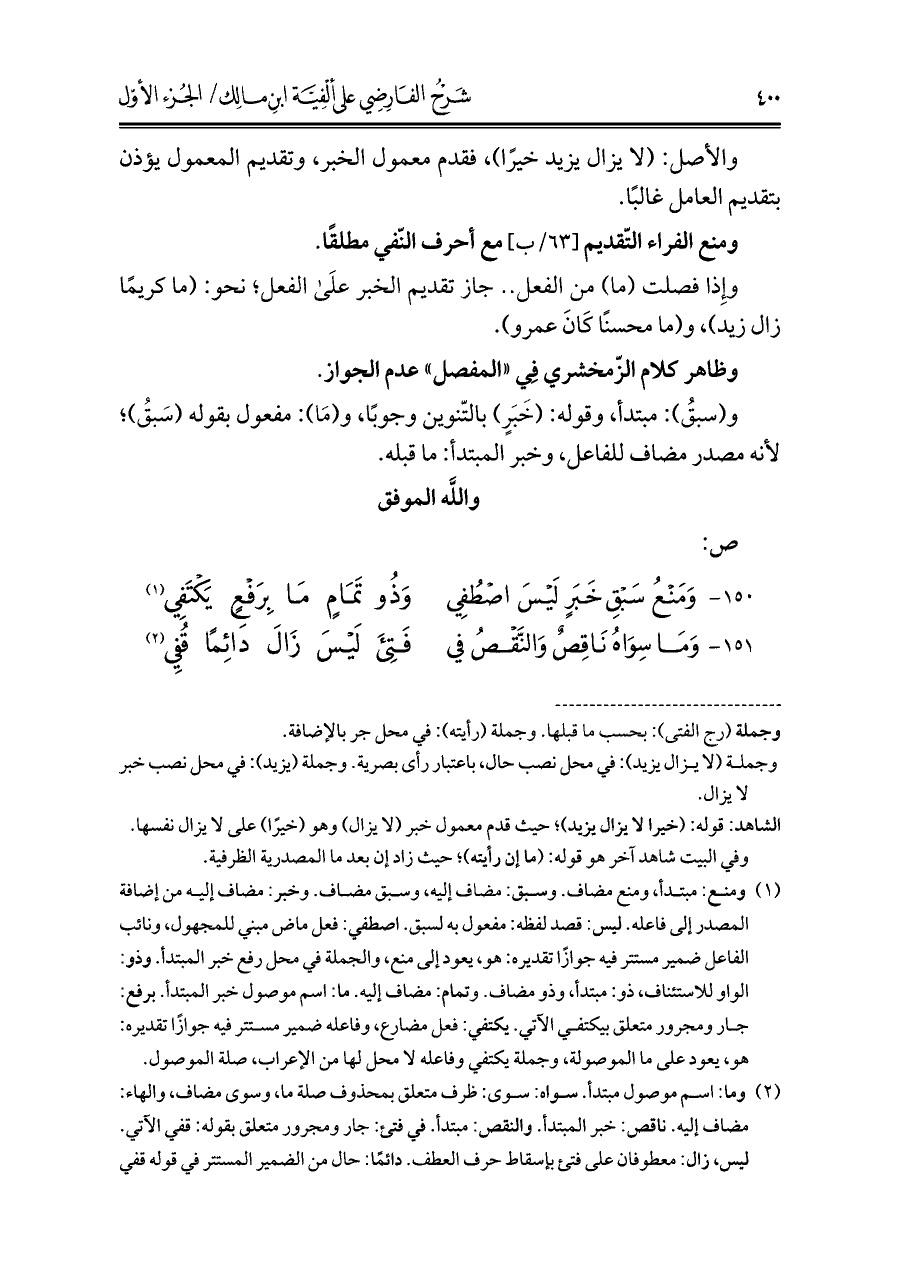 ٤٠٠ شَرْحُ الفَارِضِي على ألْفِيَّة ابنِ مَالِك/ الجُزء الأوّل
والأصل: (لا يزال يزيد خيرًا)، فقدم معمول الخبر، وتقديم المعمول يؤذن
بتقديم العامل غالبًا.
ومنع الفراء التّقديم [٦٣/ ب] مع أحرف النّفي مطلقًا.
وإِذا فصلت (ما) من الفعل.. جاز تقديم الخبر علَىٰ الفعل؛ نحو: (ما كريمًا
زال زيد)، و(ما محسنًا كَانَ عمرو).
وظاهر كلام الزّمخشري فِي «المفصل» عدم الجواز.
و(سبقُ): مبتدأ، وقوله: (خَبَرٍ) بالتّنوين وجوبًا، و(مَا): مفعول بقوله (سَبقُ)؛
لأنه مصدر مضاف للفاعل، وخبر المبتدأ: ما قبله.
واللَّه الموفق
ص:
١٥٠- وَمَنْعُ سَبْقِ خَبَرٍ لَيْسَ اصْطُفِي وَذُو تَمَامٍ مَا بِرَفْعٍ يَكْتَفِي(١)
١٥١- وَمَا سِوَاهُ نَاقِصٌ وَالنَّقْصُ فِي فَتِئَ لَيْسَ زَالَ دَائِمًا قُفِي(٢)
وجملة (رج الفتى): بحسب ما قبلها. وجملة (رأيته): في محل جر بالإضافة.
وجملة (لا يزال يزيد): في محل نصب حال، باعتبار رأى بصرية. وجملة (يزيد): في محل نصب خبر
لا يزال.
الشاهد: قوله: (خيرا لا يزال يزيد)؛ حيث قدم معمول خبر (لا يزال) وهو (خيرًا) على لا يزال نفسها.
وفي البيت شاهد آخر هو قوله: (ما إن رأيته)؛ حيث زاد إن بعد ما المصدرية الظرفية.
(١) ومنع: مبتدأ، ومنع مضاف. وسبق: مضاف إليه، وسبق مضاف. وخبر: مضاف إليه من إضافة
المصدر إلى فاعله. ليس: قصد لفظه: مفعول به لسبق. اصطفي: فعل ماض مبني للمجهول، ونائب
الفاعل ضمير مستتر فيه جوازًا تقديره: هو، يعود إلى منع، والجملة في محل رفع خبر المبتدأ. وذو:
الواو للاستئناف، ذو: مبتدأ، وذو مضاف. وتمام: مضاف إليه. ما: اسم موصول خبر المبتدأ. برفع:
جار ومجرور متعلق بيكتفي الآتي. يكتفي: فعل مضارع، وفاعله ضمير مستتر فيه جوازًا تقديره:
هو، يعود على ما الموصولة، وجملة يكتفي وفاعله لا محل لها من الإعراب، صلة الموصول.
(٢) وما: اسم موصول مبتدأ. سواه: سوى: ظرف متعلق بمحذوف صلة ما، وسوى مضاف، والهاء:
مضاف إليه. ناقص: خبر المبتدأ. والنقص: مبتدأ. في فتئ: جار ومجرور متعلق بقوله: قفي الآتي.
ليس، زال: معطوفان على فتئ بإسقاط حرف العطف. دائمًا: حال من الضمير المستتر في قوله قفي